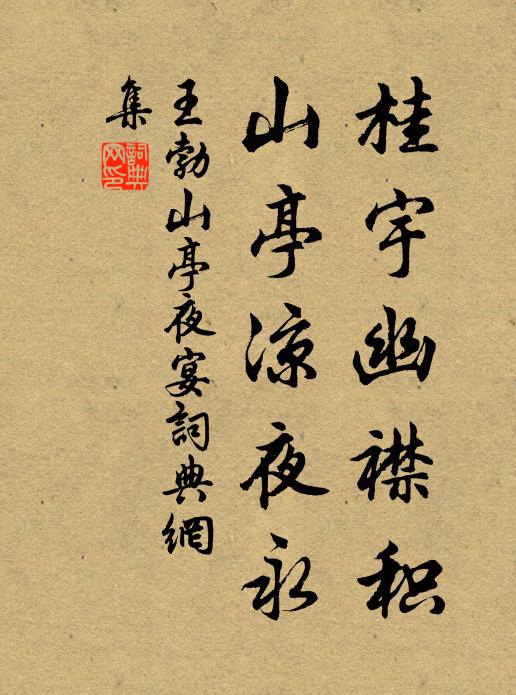 桂宇幽襟积
山亭凉夜永
王勃山亭夜宴詞典網
集
詞典网印